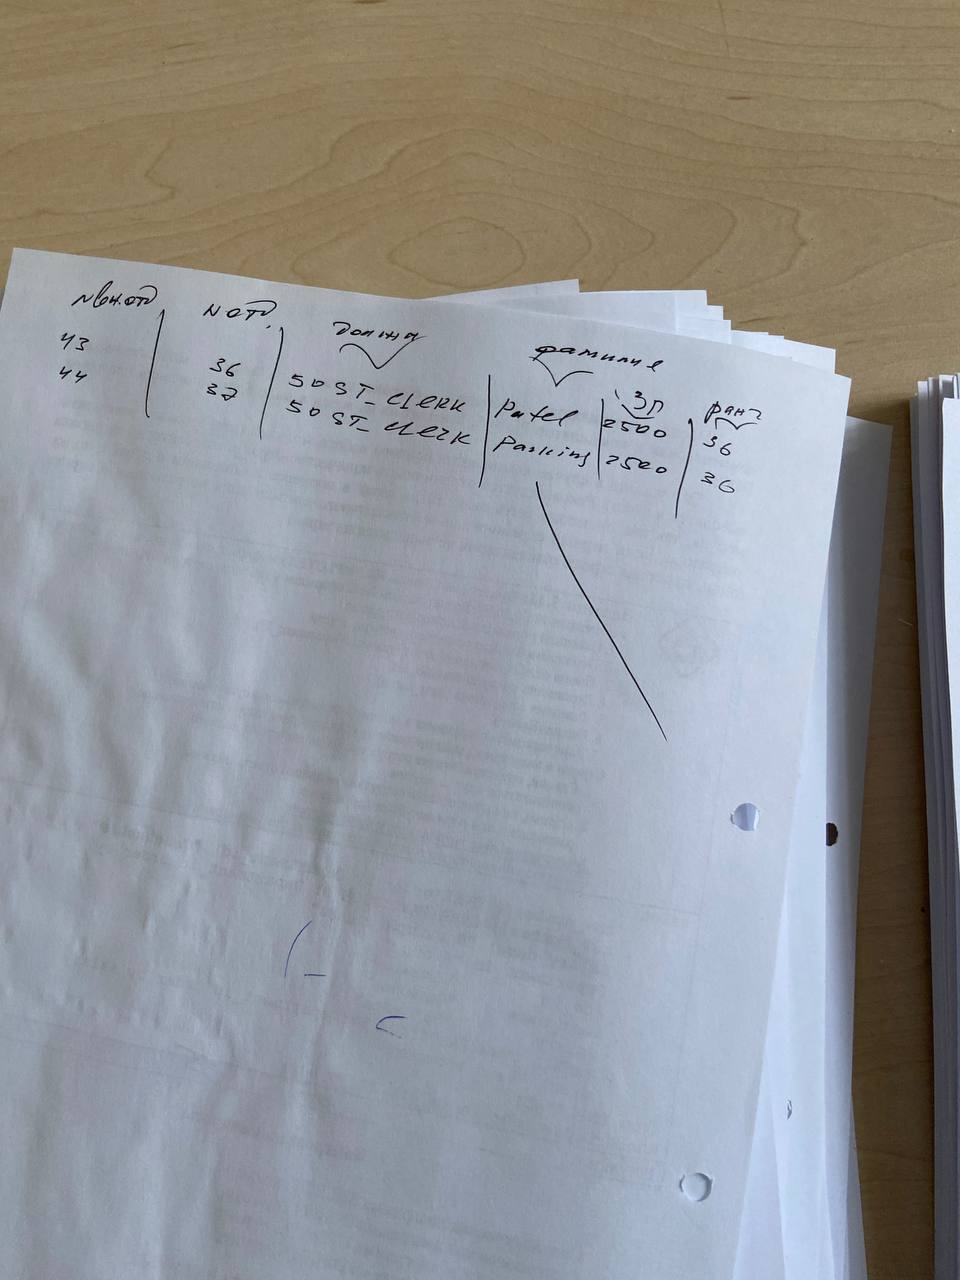 N отд. должн фамилия ЗП ранг
43 36 50 ST_CLERK Patel 2500 36
44 37 50 ST_CLERK Parking 2500 36